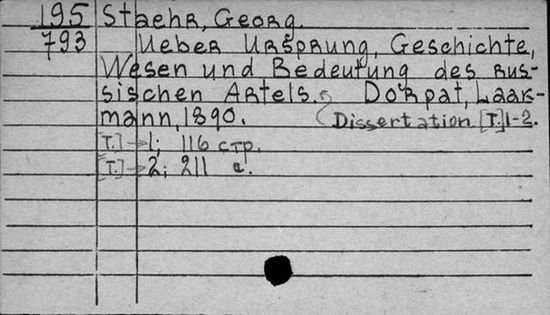 195 Staehr, Georg.
793 Ueber Ursprung, Geschichte,
Wesen und Bedeutung des rus-
sischen Artels. Dorpat, Laak-
mann, 1890. Dissertation [T.] 1-2.
[T.] → 1; 116 стр.
[T.] → 2; 211 с.